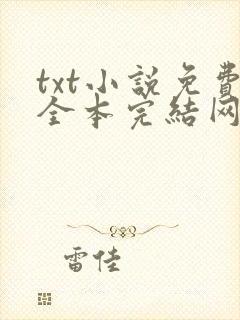 txt小說免費
全本完結网
雷佳